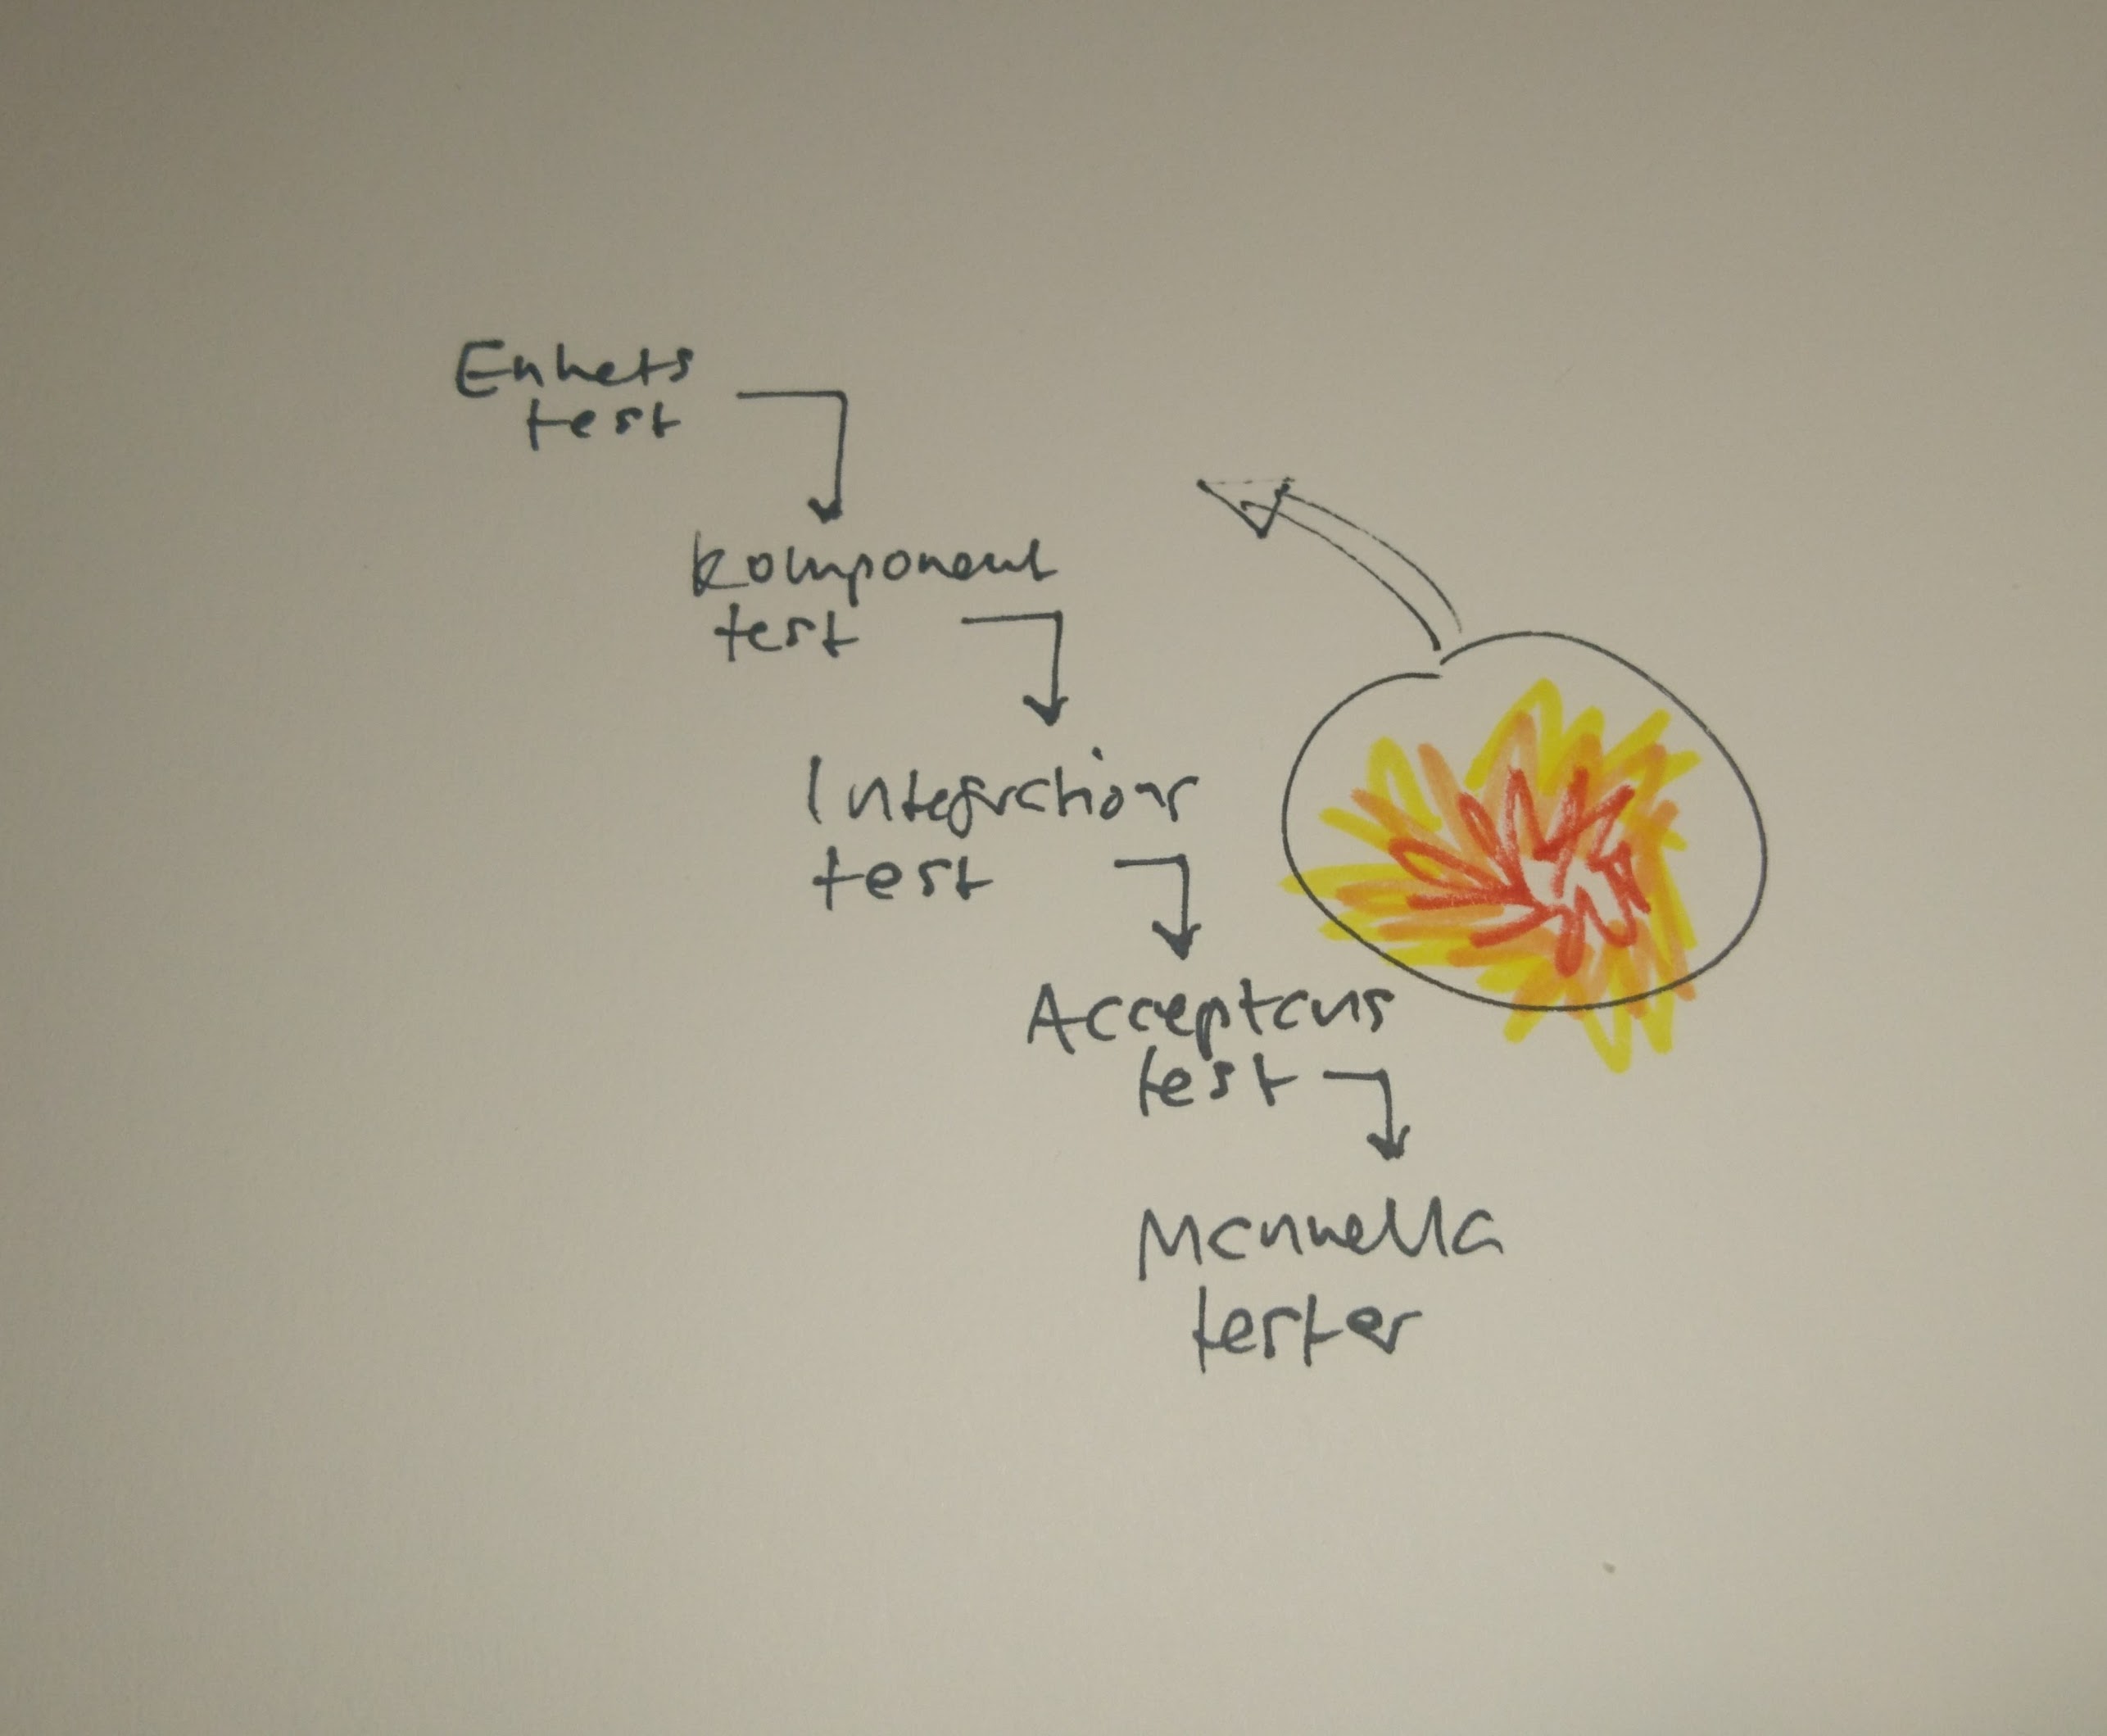 Enhets
test
Komponent
test
Integrations
test
Acceptans
test
Manuella
tester